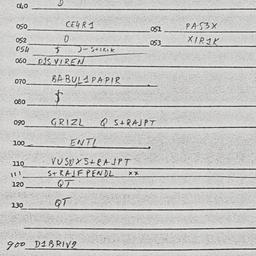 040 D
050 CE4R1 051 PA53X
052 0 053 XIR1K
054 $ J-S+IRIK
060 DJSVIREN
070 BABUL1PAPIR
080 $
090 GRIZL Q S+RAJPT
100 ENTL
110 VUSUXS+RAJPT
111 S+RAJFPENDL xx
120 QT
130 QT
900 D1BRIV9